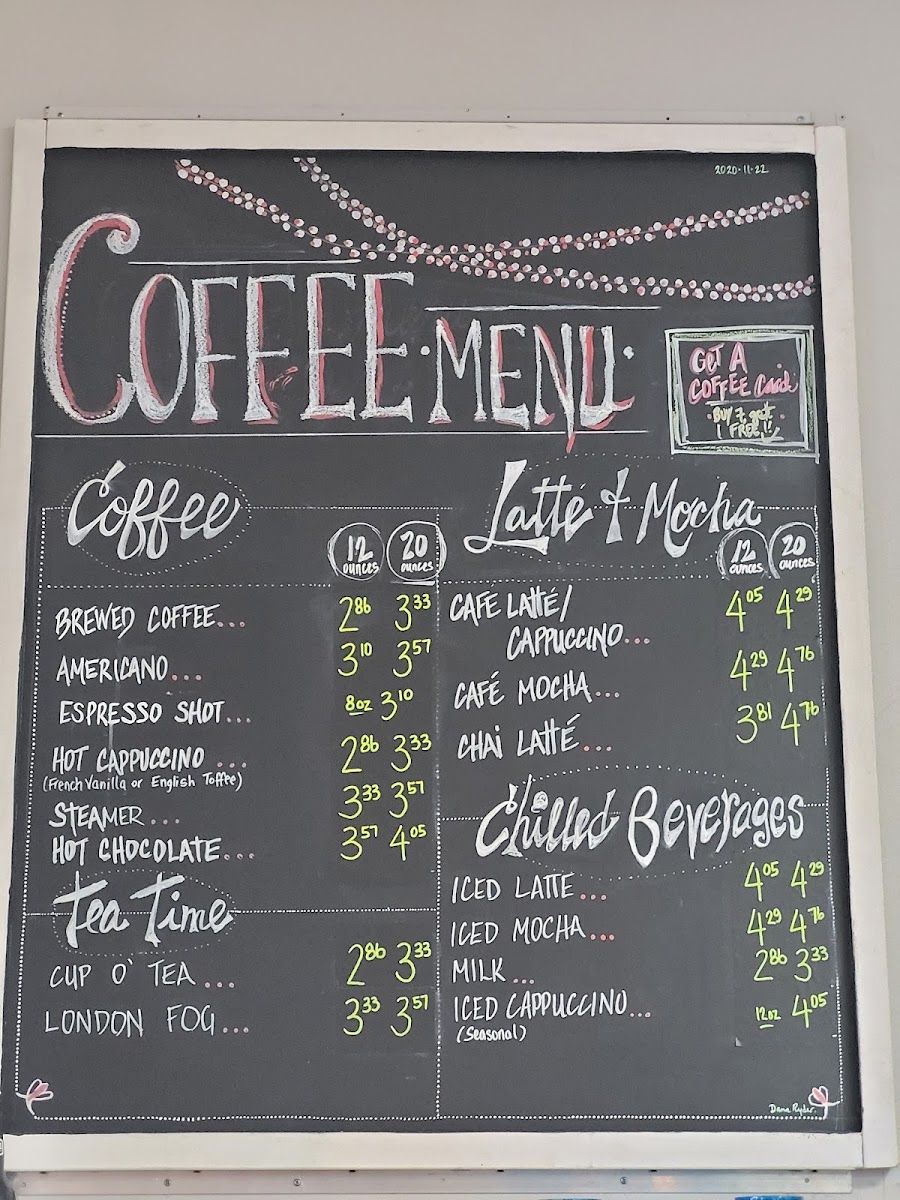 2020-11-22
COFFEE · MENU ·
GET A
COFFEE Card
BUY 7 get
1 FREE!!
Coffee
12 ounces 20 ounces
BREWED COFFEE... 2.86 3.33
AMERICANO... 3.10 3.57
ESPRESSO SHOT... 8oz 3.10
HOT CAPPUCCINO ... 2.86 3.33
(French Vanilla or English Toffee)
STEAMER... 3.33 3.57
HOT CHOCOLATE... 3.57 4.05
Tea Time
CUP O' TEA ... 2.86 3.33
LONDON FOG... 3.33 3.57
Latté & Mocha
12 ounces 20 ounces
CAFE LATTÉ/
CAPPUCCINO... 4.05 4.29
CAFÉ MOCHA... 4.29 4.76
CHAI LATTÉ... 3.81 4.76
Chilled Beverages
ICED LATTE... 4.05 4.29
ICED MOCHA... 4.29 4.76
MILK... 2.86 3.33
ICED CAPPUCCINO... 12oz 4.05
(Seasonal)
Dana Ryder.